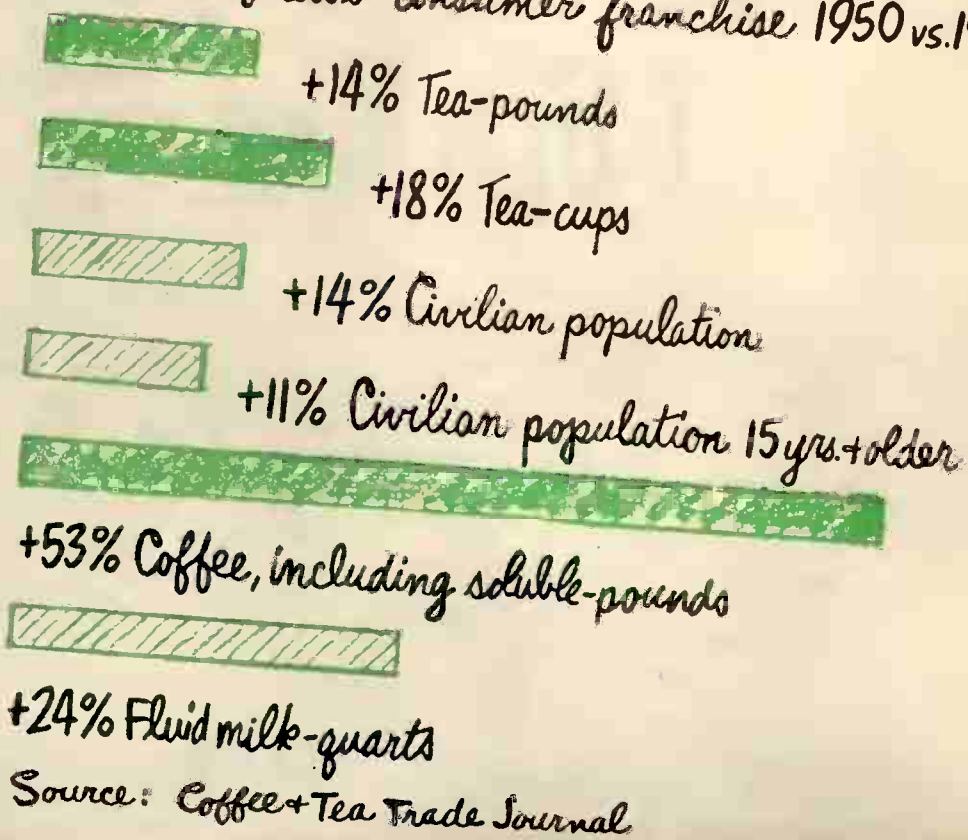 consumer franchise 1950 vs. 1
+14% Tea-pounds
+18% Tea-cups
+14% Civilian population
+11% Civilian population 15 yrs. + older
+53% Coffee, including soluble-pounds
+24% Fluid milk-quarts
Source: Coffee + Tea Trade Journal